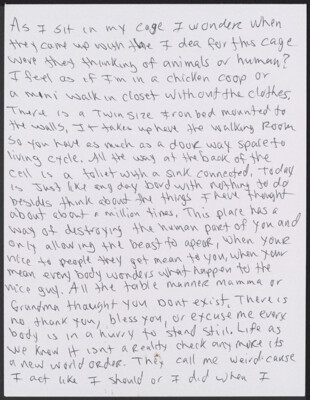 As I sit in my cage I wondere when
they came up with the I dea for this cage
were they thinking of animals or human?
I feel as if I'm in a chicken coop or
a mani walk in closet without the clothes.
There is a Twin size Iron bed mounted to
the walls, It takes up have the walking Room
So you have as much as a door way space to
living cycle. All the way at the back of the
cell is a toliet with a sink connected. Today
is Just like any day bord with nothing to do
besids think about the things I have thought
about about a million times. This place has a
way of destroying the human part of you and
only allowing the beast to apear, when your
nice to people they get mean to you, when your
mean every body wonders what happen to the
nice guy. All the table manners mamma or
Grandma thaught you Dont exist, There is
no thank you, bless you, or excuse me every
body is in a hurry to stand still. Life as
we know it isnt a Reality check any more its
a new world order. They call me weird cause
I act like I should or I did when I